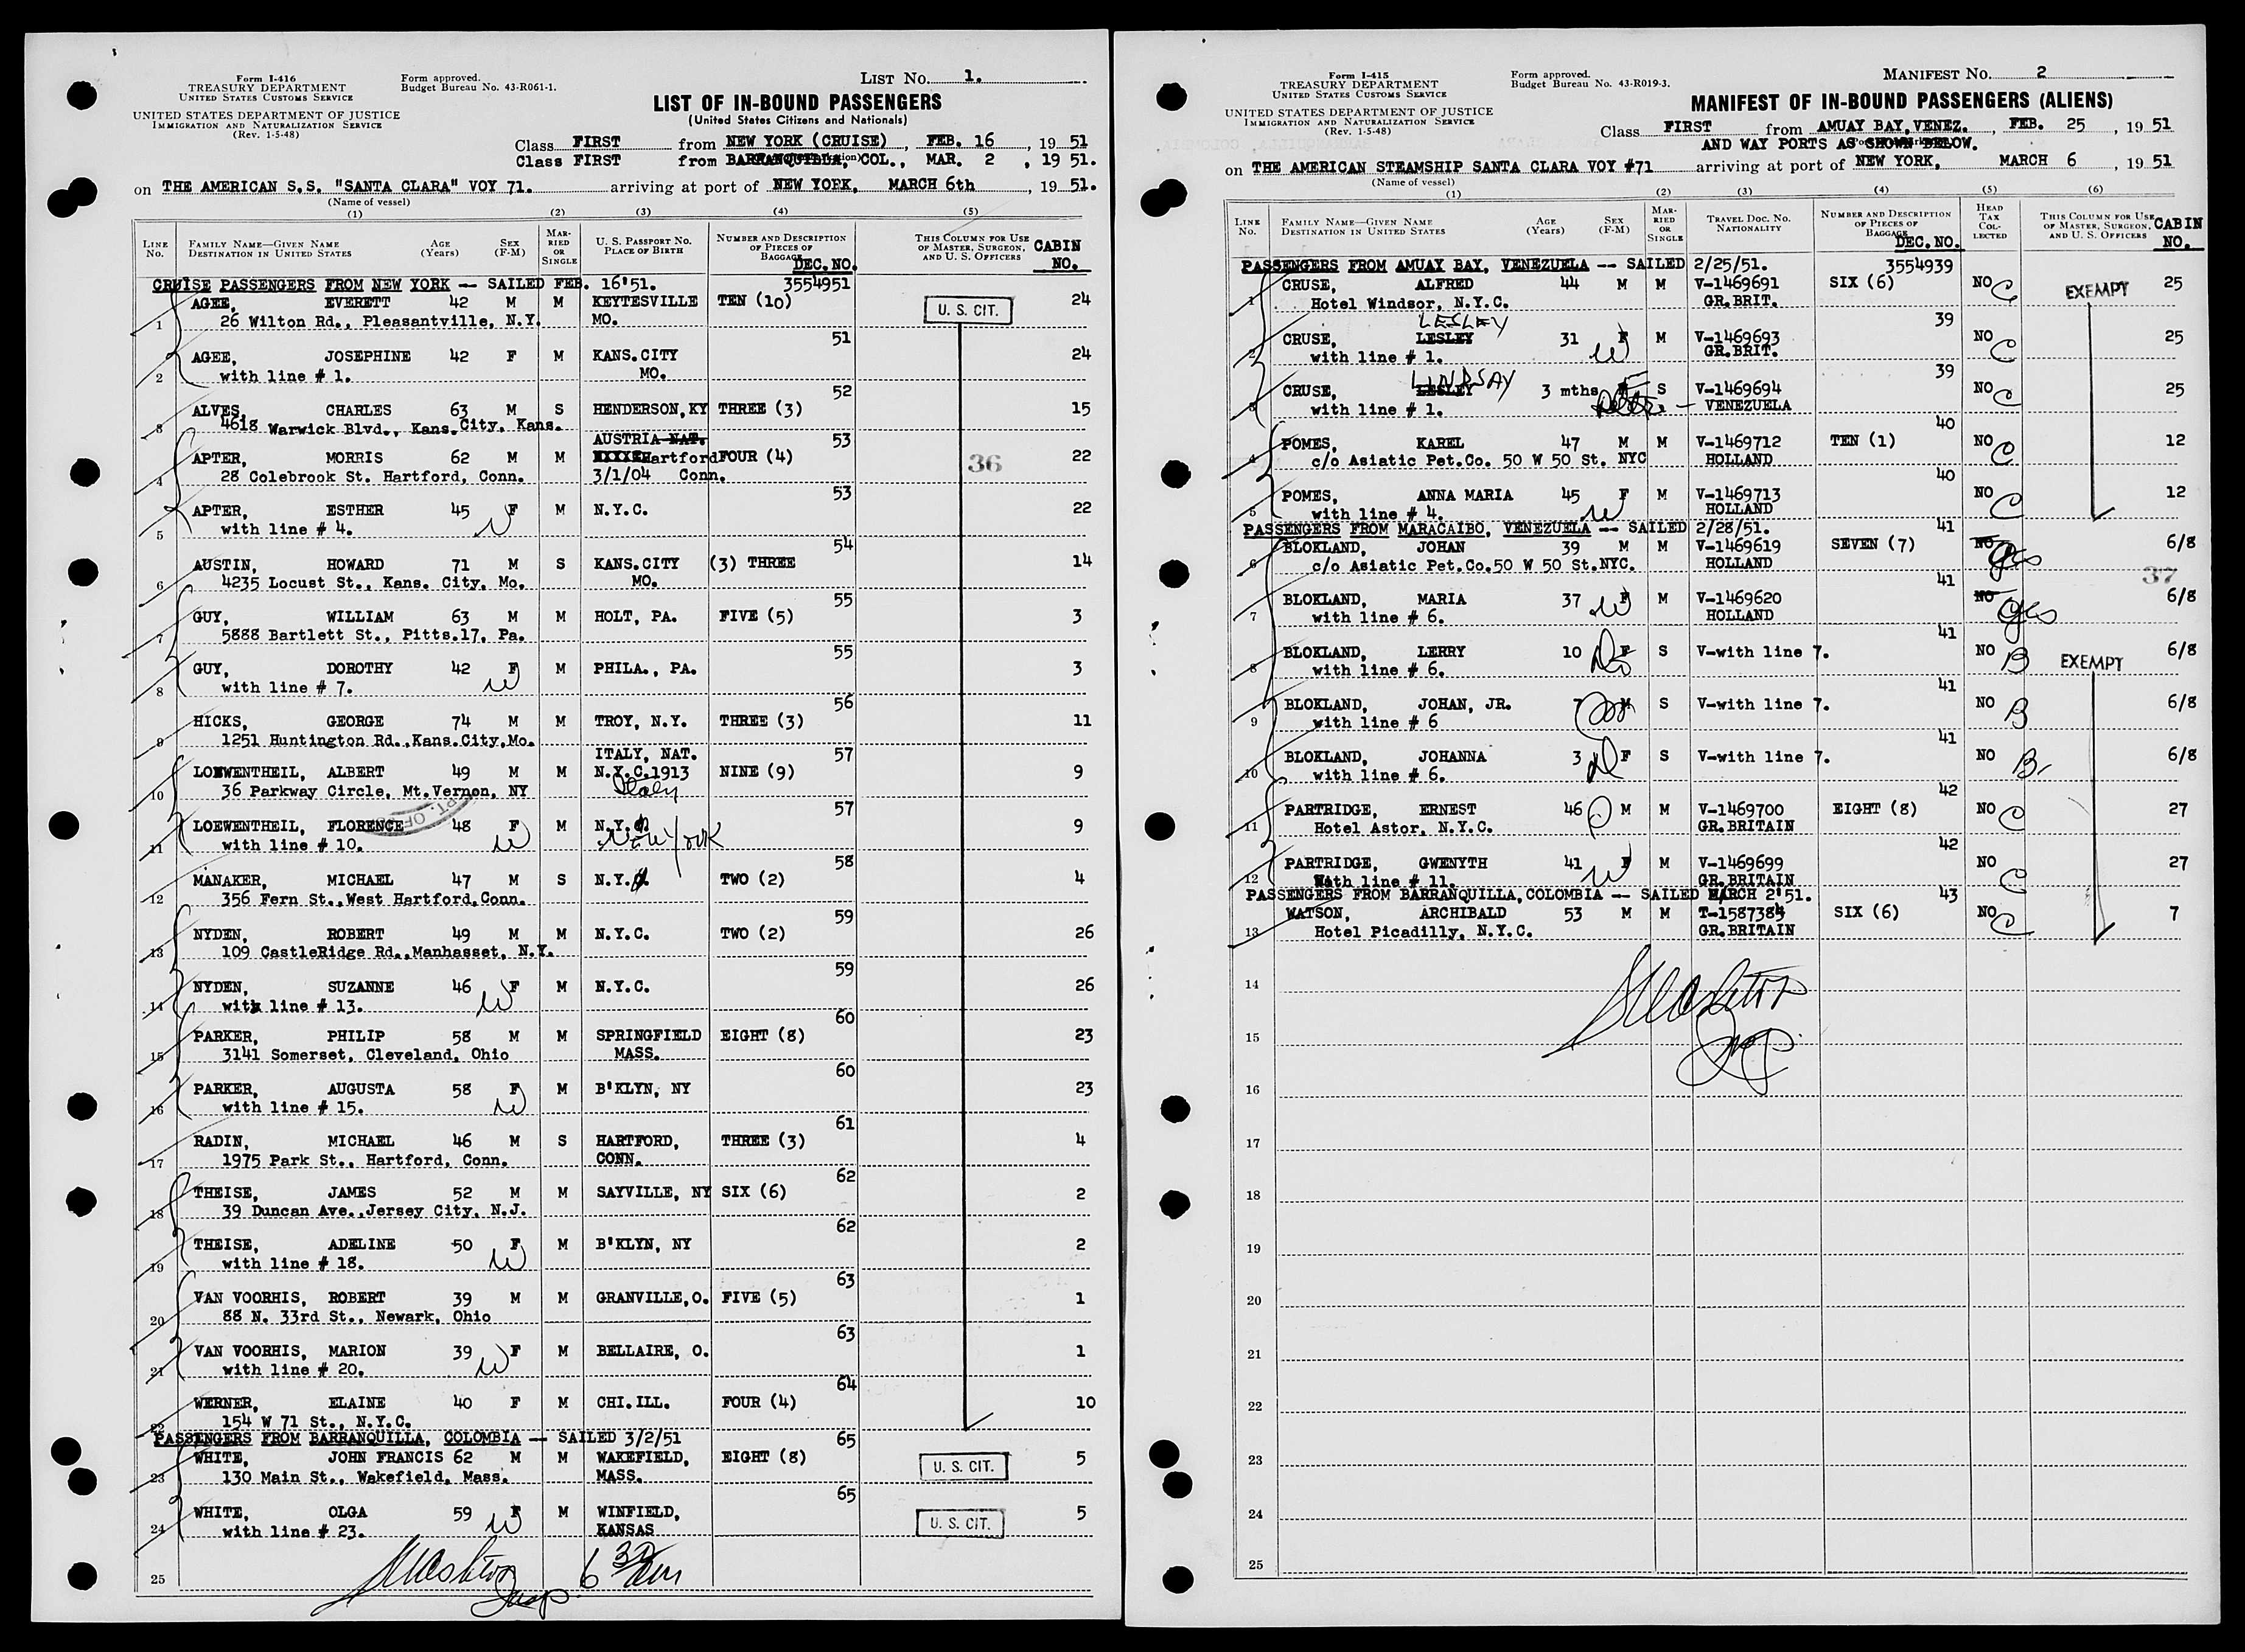 Form I-416
TREASURY DEPARTMENT
UNITED STATES CUSTOMS SERVICE
UNITED STATES DEPARTMENT OF JUSTICE
IMMIGRATION AND NATURALIZATION SERVICE
(Rev. 1-5-48)
Form approved.
Budget Bureau No. 43-R061-1.
LIST No. 1.
LIST OF IN-BOUND PASSENGERS
(United States Citizens and Nationals)
Class FIRST from NEW YORK (CRUISE), FEB. 16, 1951
Class FIRST from BARRANQUILLA, COL., MAR. 2, 1951.
on THE AMERICAN S.S. "SANTA CLARA" VOY 71. arriving at port of NEW YORK, MARCH 6th, 1951.
(Name of vessel)
(1) (2) (3) (4) (5)
LINE No. FAMILY NAME—GIVEN NAME DESTINATION IN UNITED STATES AGE (Years) SEX (F-M) MARRIED OR SINGLE U. S. PASSPORT NO. PLACE OF BIRTH NUMBER AND DESCRIPTION OF PIECES OF BAGGAGE DEC. NO. THIS COLUMN FOR USE OF MASTER, SURGEON, AND U. S. OFFICERS CABIN NO.
CRUISE PASSENGERS FROM NEW YORK — SAILED FEB. 16'51. 3554951
1 AGEE, EVERETT 42 M M KEYTESVILLE TEN (10) U. S. CIT. 24
26 Wilton Rd., Pleasantville, N.Y. MO.
51
2 AGEE, JOSEPHINE 42 F M KANS.CITY 24
with line # 1. MO.
52
3 ALVES, CHARLES 63 M S HENDERSON, KY THREE (3) 15
4618 Warwick Blvd., Kans. City, Kans.
AUSTRIA NAT. 53
4 APTER, MORRIS 62 M M Hartford FOUR (4) 36 22
28 Colebrook St. Hartford, Conn. 3/1/04 Conn.
53
5 APTER, ESTHER 45 F M N.Y.C. 22
with line # 4. W
54
6 AUSTIN, HOWARD 71 M S KANS.CITY (3) THREE 14
4235 Locust St., Kans. City, Mo. MO.
55
7 GUY, WILLIAM 63 M M HOLT, PA. FIVE (5) 3
5888 Bartlett St., Pitts.17, Pa.
55
8 GUY, DOROTHY 42 F M PHILA., PA. 3
with line # 7. W
56
9 HICKS, GEORGE 74 M M TROY, N.Y. THREE (3) 11
1251 Huntington Rd.,Kans.City,Mo.
ITALY, NAT. 57
10 LOEWENTHEIL, ALBERT 49 M M N.Y.C.1913 NINE (9) 9
36 Parkway Circle, Mt.Vernon, NY Italy
57
11 LOEWENTHEIL, FLORENCE 48 F M N.Y. 9
with line # 10. W New York
58
12 MANAKER, MICHAEL 47 M S N.Y. TWO (2) 4
356 Fern St.,West Hartford,Conn.
59
13 NYDEN, ROBERT 49 M M N.Y.C. TWO (2) 26
109 CastleRidge Rd.,Manhasset, N.Y.
59
14 NYDEN, SUZANNE 46 F M N.Y.C. 26
with line # 13. W
60
15 PARKER, PHILIP 58 M M SPRINGFIELD EIGHT (8) 23
3141 Somerset, Cleveland, Ohio MASS.
60
16 PARKER, AUGUSTA 58 F M B'KLYN, NY 23
with line # 15. W
61
17 RADIN, MICHAEL 46 M S HARTFORD, THREE (3) 4
1975 Park St., Hartford, Conn. CONN.
62
18 THEISE, JAMES 52 M M SAYVILLE, NY SIX (6) 2
39 Duncan Ave.,Jersey City, N.J.
62
19 THEISE, ADELINE 50 F M B'KLYN, NY 2
with line # 18. W
63
20 VAN VOORHIS, ROBERT 39 M M GRANVILLE,O. FIVE (5) 1
88 N. 33rd St., Newark, Ohio
63
21 VAN VOORHIS, MARION 39 F M BELLAIRE, O. 1
with line # 20. W
64
22 WERNER, ELAINE 40 F M CHI.ILL. FOUR (4) 10
154 W 71 St., N.Y.C.
PASSENGERS FROM BARRANQUILLA, COLOMBIA — SAILED 3/2/51 65
23 WHITE, JOHN FRANCIS 62 M M WAKEFIELD, EIGHT (8) U. S. CIT. 5
130 Main St., Wakefield, Mass. MASS.
65
24 WHITE, OLGA 59 F M WINFIELD, U. S. CIT. 5
with line # 23. W KANSAS
25
Form I-415
TREASURY DEPARTMENT
UNITED STATES CUSTOMS SERVICE
UNITED STATES DEPARTMENT OF JUSTICE
IMMIGRATION AND NATURALIZATION SERVICE
(Rev. 1-5-48)
Form approved.
Budget Bureau No. 43-R019-3.
MANIFEST No. 2
MANIFEST OF IN-BOUND PASSENGERS (ALIENS)
Class FIRST from AMUAY BAY, VENEZ., FEB. 25, 1951
AND WAY PORTS AS SHOWN BELOW.
on THE AMERICAN STEAMSHIP SANTA CLARA VOY #71 arriving at port of NEW YORK, MARCH 6, 1951
(Name of vessel)
(1) (2) (3) (4) (5) (6)
LINE No. FAMILY NAME—GIVEN NAME DESTINATION IN UNITED STATES AGE (Years) SEX (F-M) MARRIED OR SINGLE TRAVEL DOC. NO. NATIONALITY NUMBER AND DESCRIPTION OF PIECES OF BAGGAGE DEC. NO. HEAD TAX COLLECTED THIS COLUMN FOR USE OF MASTER, SURGEON, AND U. S. OFFICERS CABIN NO.
PASSENGERS FROM AMUAY BAY, VENEZUELA — SAILED 2/25/51. 3554939
1 CRUSE, ALFRED 44 M M V-1469691 SIX (6) NO C EXEMPT 25
Hotel Windsor, N.Y.C. GR. BRIT.
LESLEY 39
2 CRUSE, LESLEY 31 F M V-1469693 NO C 25
with line # 1. W GR.BRIT.
LINDSAY 39
3 CRUSE, LESLEY 3 mths F S V-1469694 NO C 25
with line # 1. VENEZUELA
40
4 POMES, KAREL 47 M M V-1469712 TEN (1) NO C 12
c/o Asiatic Pet.Co. 50 W 50 St. NYC HOLLAND
40
5 POMES, ANNA MARIA 45 F M V-1469713 NO C 12
with line # 4. W HOLLAND
PASSENGERS FROM MARACAIBO, VENEZUELA — SAILED 2/28/51. 41
6 BLOKLAND, JOHAN 39 M M V-1469619 SEVEN (7) NO yes 6/8
c/o Asiatic Pet.Co.50 W 50 St.NYC. HOLLAND
37
41
7 BLOKLAND, MARIA 37 F M V-1469620 NO yes 6/8
with line # 6. W HOLLAND
41
8 BLOKLAND, LERRY 10 F S V-with line 7. NO B EXEMPT 6/8
with line # 6.
41
9 BLOKLAND, JOHAN, JR. 7 M S V-with line 7. NO B 6/8
with line # 6
41
10 BLOKLAND, JOHANNA 3 F S V-with line 7. NO B 6/8
with line # 6.
42
11 PARTRIDGE, ERNEST 46 M M V-1469700 EIGHT (8) NO C 27
Hotel Astor, N.Y.C. GR.BRITAIN
42
12 PARTRIDGE, GWENYTH 41 F M V-1469699 NO C 27
With line # 11. W GR.BRITAIN
PASSENGERS FROM BARRANQUILLA,COLOMBIA — SAILED MARCH 2'51. 43
13 WATSON, ARCHIBALD 53 M M T-1587384 SIX (6) NO C 7
Hotel Picadilly, N.Y.C. GR.BRITAIN
14
15
16
17
18
19
20
21
22
23
24
25